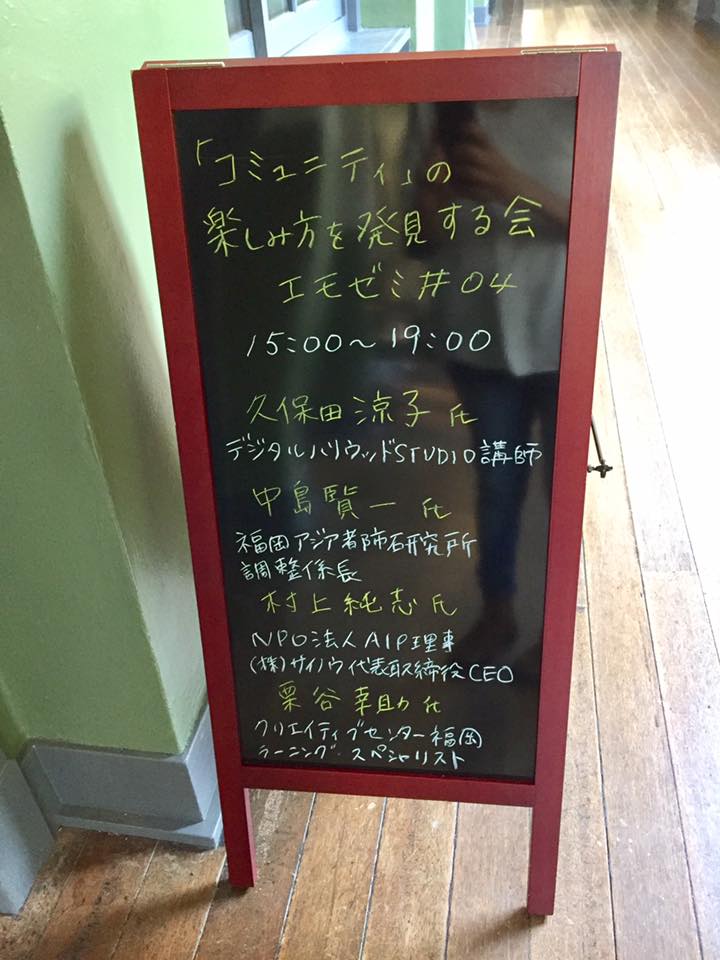 「コミュニティ」の
楽しみ方を発見する会
エモゼミ#04
15:00〜19:00
久保田涼子氏
デジタルハリウッドSTUDIO講師
中島賢一氏
福岡アジア都市研究所
調整係長
村上純志氏
NPO法人AIP理事
(株)サイノウ代表取締役CEO
栗谷幸助氏
クリエイティブセンター福岡
ラーニング・スペシャリスト